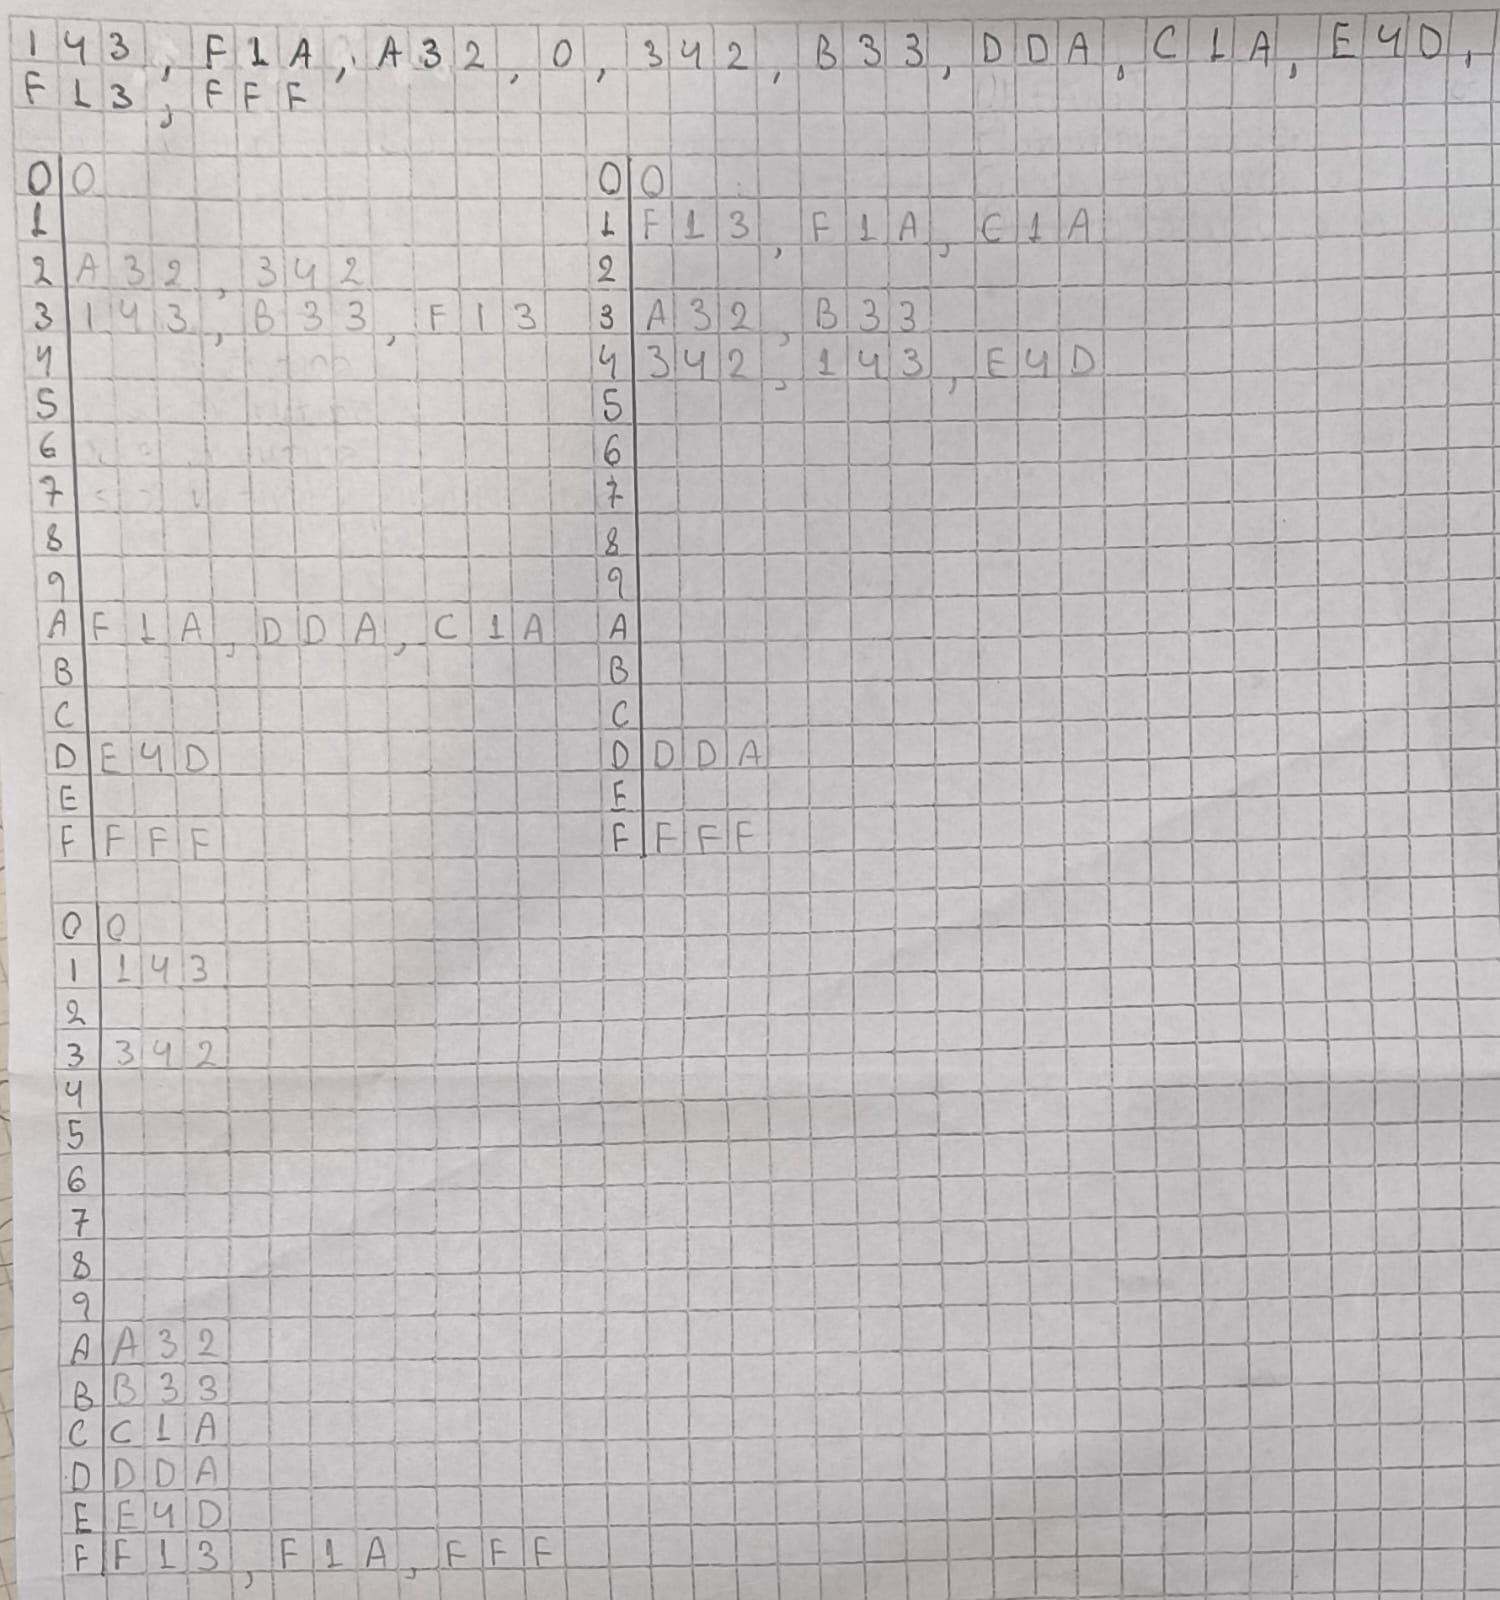 143, F1A, A32, 0, 342, B33, DDA, C1A, E4D,
F13, FFF
0 0
1
2 A32, 342
3 143, B33, F13
4
5
6
7
8
9
A F1A, DDA, C1A
B
C
D E4D
E
F FFF
0 0
1 F13, F1A, C1A
2
3 A32, B33
4 342, 143, E4D
5
6
7
8
9
A
B
C
D DDA
E
F FFF
0 0
1 143
2
3 342
4
5
6
7
8
9
A A32
B B33
C C1A
D DDA
E E4D
F F13, F1A, FFF